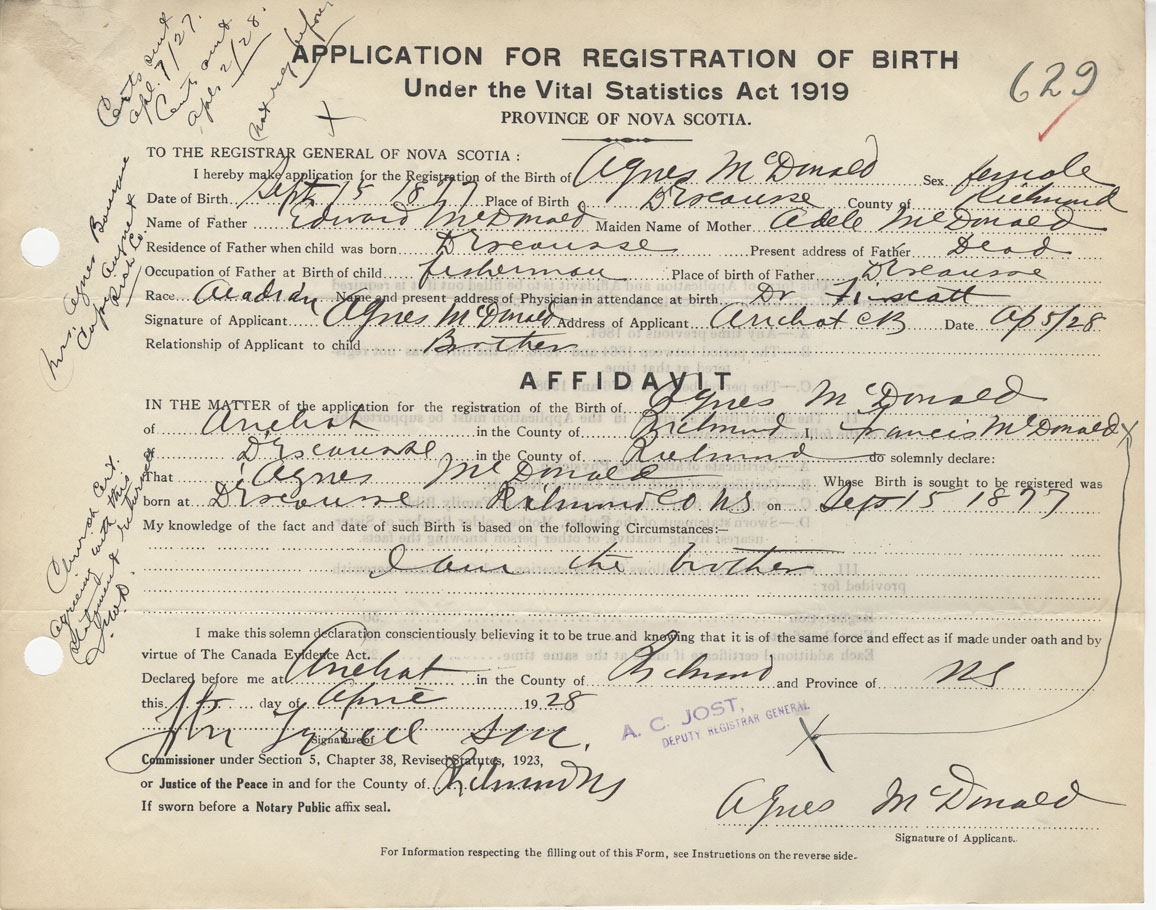 Certs sent
apl. 7/27.
Certs sent
apl 2/28.
not reg before
APPLICATION FOR REGISTRATION OF BIRTH
Under the Vital Statistics Act 1919
PROVINCE OF NOVA SCOTIA.
629
TO THE REGISTRAR GENERAL OF NOVA SCOTIA :
I hereby make application for the Registration of the Birth of Agnes McDonald Sex female
Date of Birth Sept 15 1877 Place of Birth D'escousse County of Richmond
Name of Father Edward McDonald Maiden Name of Mother Adele McDonald
Residence of Father when child was born D'escousse Present address of Father Dead
Occupation of Father at Birth of child fisherman Place of birth of Father D'escousse
Race Acadian Name and present address of Physician in attendance at birth Dr
Signature of Applicant Agnes McDonald Address of Applicant Arichat CB Date Ap 5/28
Relationship of Applicant to child Brother
AFFIDAVIT
IN THE MATTER of the application for the registration of the Birth of Agnes McDonald
of Arichat in the County of Richmond I, Francis McDonald x
of D'escousse in the County of Richmond do solemnly declare:
That Agnes McDonald Whose Birth is sought to be registered was
born at D'escousse Richmond Co NS on Sept 15 1877
My knowledge of the fact and date of such Birth is based on the following Circumstances:—
I am the brother
I make this solemn declaration conscientiously believing it to be true and knowing that it is of the same force and effect as if made under oath and by
virtue of The Canada Evidence Act.
Declared before me at Arichat in the County of Richmond and Province of NS
this 5 day of April 1928
A. C. JOST,
DEPUTY REGISTRAR GENERAL
x
Signature of
Commissioner under Section 5, Chapter 38, Revised Statutes, 1923,
or Justice of the Peace in and for the County of Richmond NS
If sworn before a Notary Public affix seal.
Agnes McDonald
Signature of Applicant.
For Information respecting the filling out of this Form, see Instructions on the reverse side.
Mrs. Agnes
Church Cert.
agreeing with this
statement returned